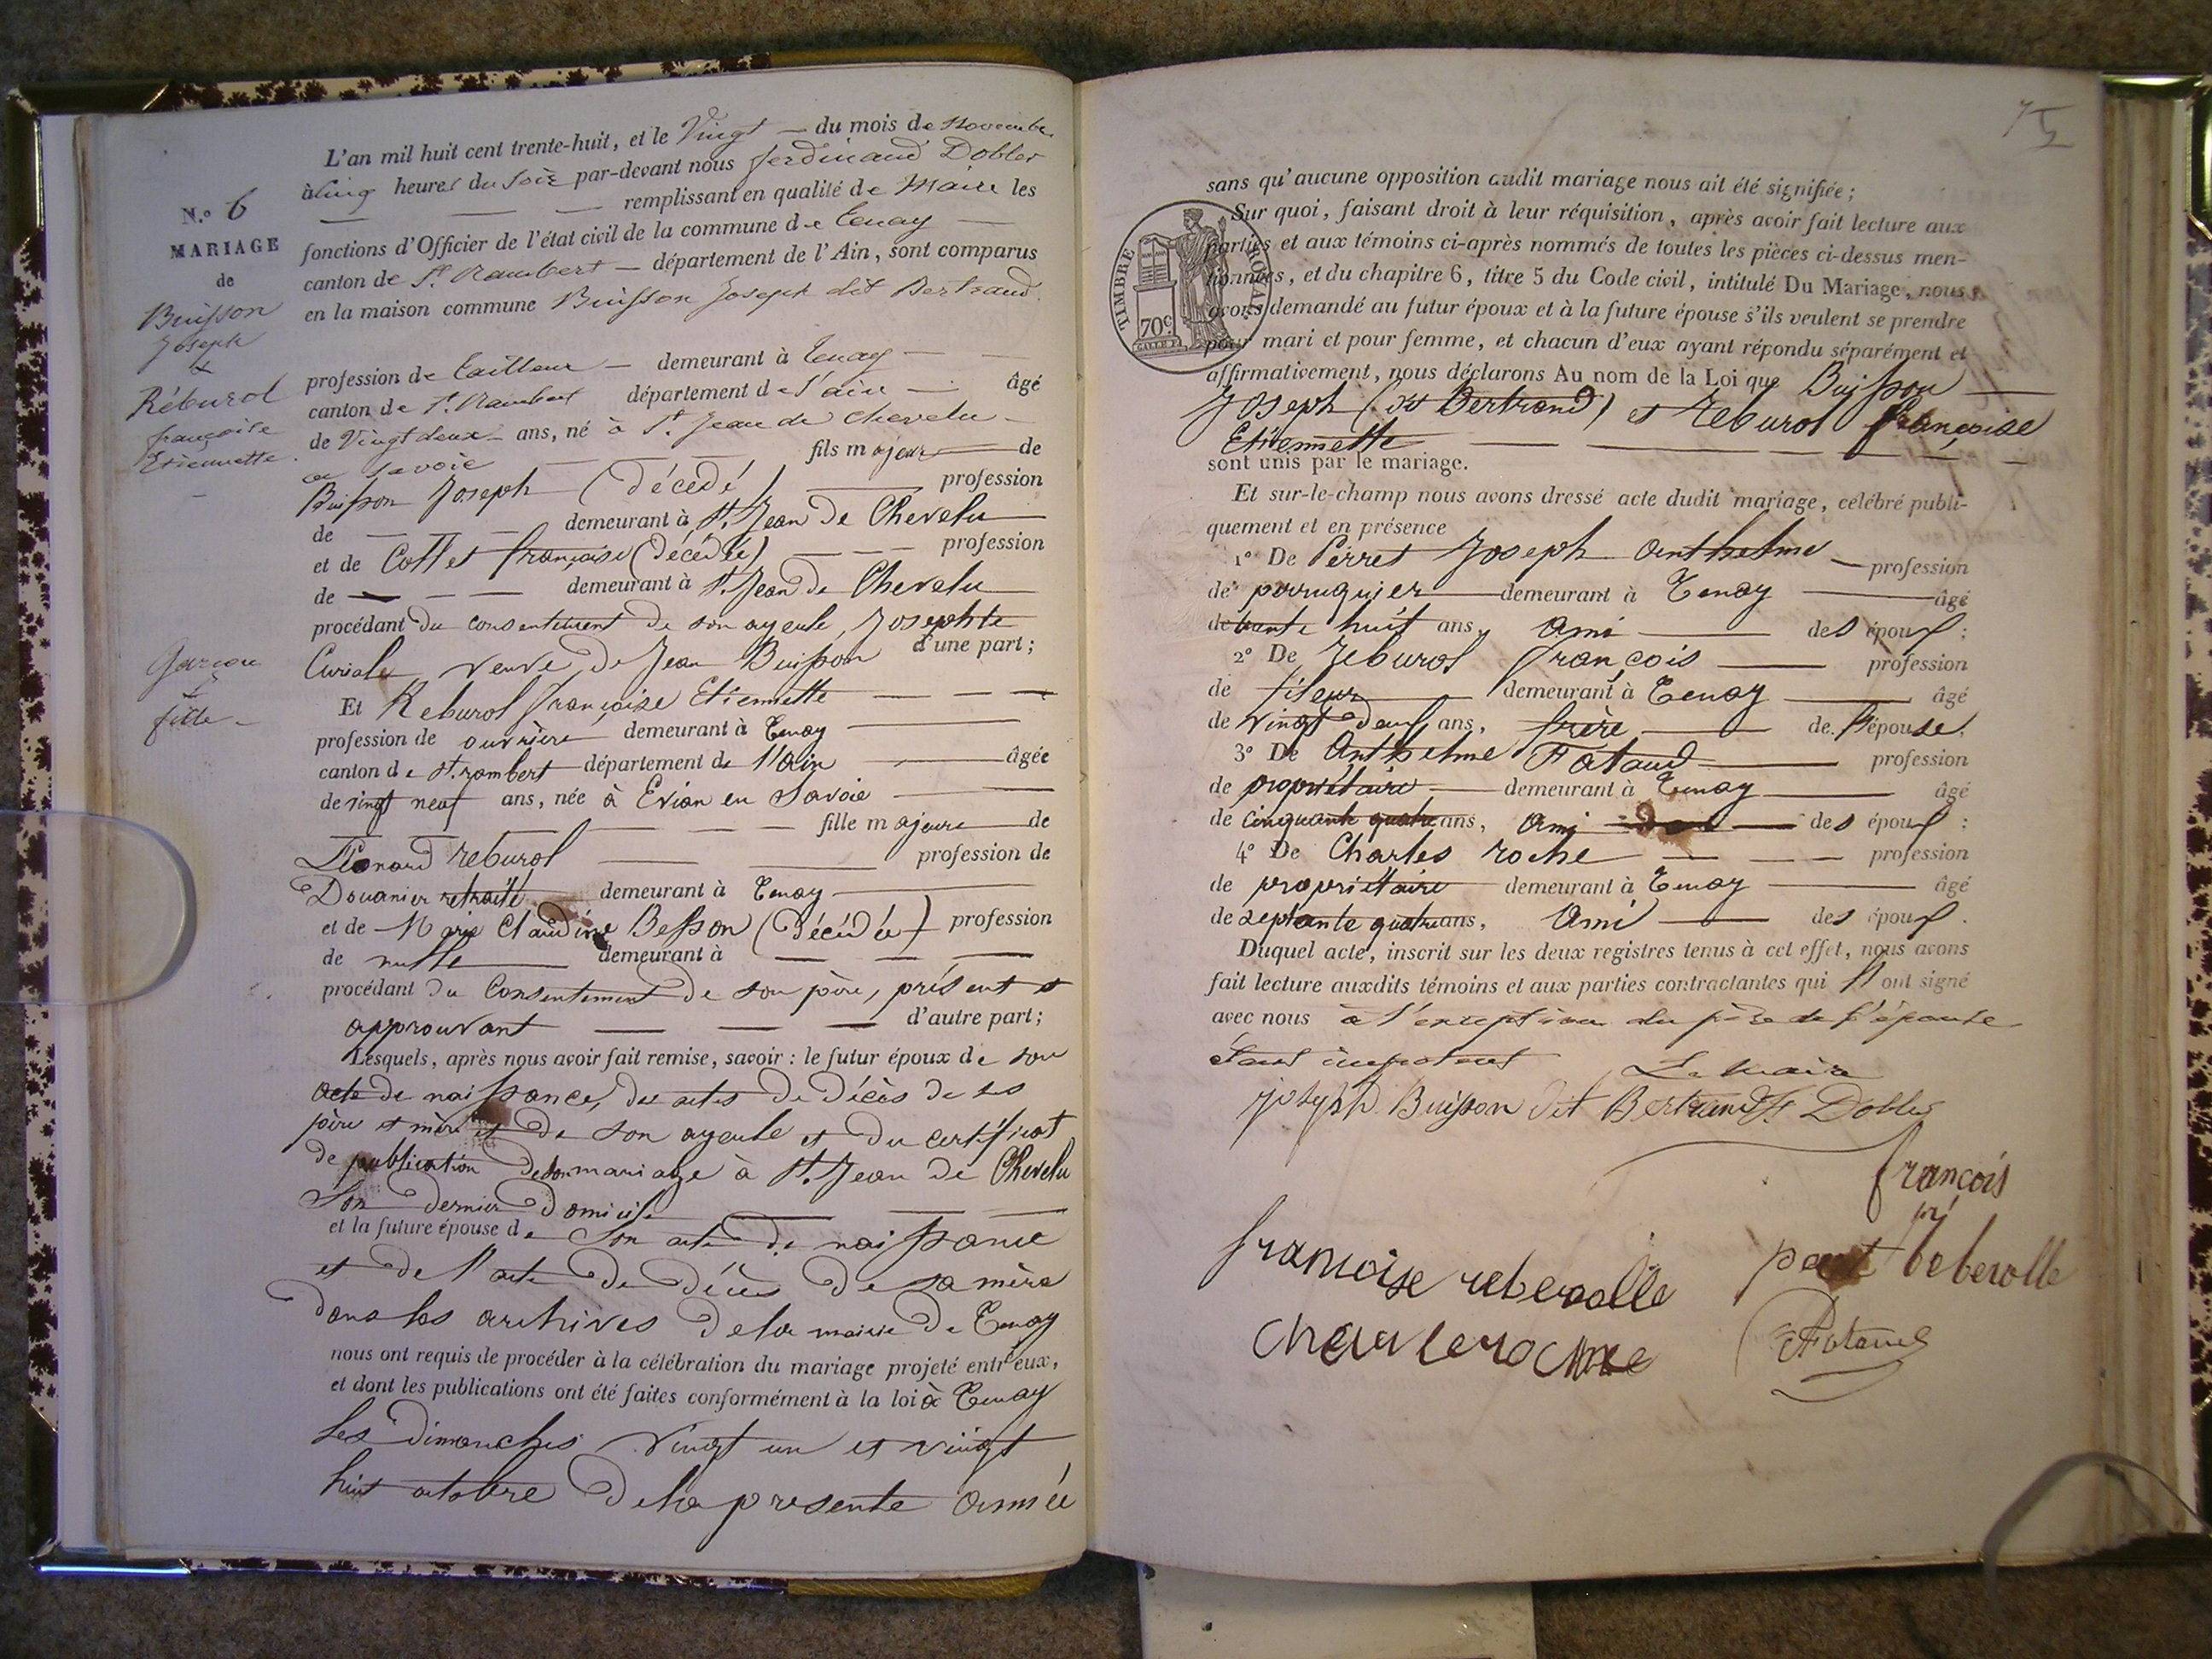 N.º 6
MARIAGE
de
Buisson
Joseph
&
Réburol
françoise
Etiennette.
Garçon
&
fille
L'an mil huit cent trente-huit, et le Vingt du mois de Novembre
à Cinq heures du Soir par-devant nous ferdinand Dobler
remplissant en qualité de Maire les
fonctions d'Officier de l'état civil de la commune de Tenay
canton de St. Rambert département de l'Ain, sont comparus
en la maison commune Buisson Joseph dit Bertrand
profession de tailleur demeurant à Tenay
canton de St. Rambert département de l'ain âgé
de Vingt deux ans, né à St. Jean de Chevelu
en Savoie fils majeur de
Buisson Joseph (décédé) profession
de demeurant à St. Jean de Chevelu
et de Collet françoise (décédée) profession
de demeurant à St. Jean de Chevelu
procédant du consentement de son ayeule, Josephte
Curiale, veuve de Jean Buisson d'une part;
Et Reburol françoise Etiennette
profession de ouvrière demeurant à Tenay
canton de St. rambert département de l'Ain âgée
de vingt neuf ans, née à Evian en Savoie
fille majeure de
Léonard reburol profession de
Douanier retraité demeurant à Tenay
et de Marie Claudine Besson (décédée) profession
de nulle demeurant à
procédant du Consentement de son père, présent et
approuvant d'autre part;
Lesquels, après nous avoir fait remise, savoir: le futur époux de son
acte de naissance, des actes de Décès de ses
père et mère et de son ayeule et du certificat
de publication de son mariage à St. Jean de Chevelu
Son dernier domicile
et la future épouse de Son acte de naissance
et de l'acte de Décès de sa mère
dans les archives de la mairie de Tenay
nous ont requis de procéder à la célébration du mariage projeté entr'eux,
et dont les publications ont été faites conformément à la loi à Tenay
les dimanches vingt un et vingt
huit octobre de la presente année
75
TIMBRE ROYAL
70c.
sans qu'aucune opposition audit mariage nous ait été signifiée;
Sur quoi, faisant droit à leur réquisition, après avoir fait lecture aux
parties et aux témoins ci-après nommés de toutes les pièces ci-dessus men-
tionnées, et du chapitre 6, titre 5 du Code civil, intitulé Du Mariage, nous
avons demandé au futur époux et à la future épouse s'ils veulent se prendre
pour mari et pour femme, et chacun d'eux ayant répondu séparément et
affirmativement, nous déclarons Au nom de la Loi que Buisson
Joseph (dit Bertrand) et Reburol françoise
Etiennette
sont unis par le mariage.
Et sur-le-champ nous avons dressé acte dudit mariage, célébré publi-
quement et en présence
1º De Perret Joseph Anthelme profession
de perruquier demeurant à Tenay âgé
de trente huit ans, Ami des époux;
2º De Reburol François profession
de fileur demeurant à Tenay âgé
de vingt deux ans, frère de l'épouse;
3º De Anthelme Fataud profession
de propriétaire demeurant à Tenay âgé
de cinquante quatre ans, Ami des époux;
4º De Charles roche profession
de propriétaire demeurant à Tenay âgé
de septante quatre ans, Ami des époux.
Duquel acte, inscrit sur les deux registres tenus à cet effet, nous avons
fait lecture auxdits témoins et aux parties contractantes qui l'ont signé
avec nous à l'exception du père de l'épouse
Le Maire
joseph Buisson dit Bertrand F. Dobler
françois
reberolle
francoise reberolle
charle roche
Fataud